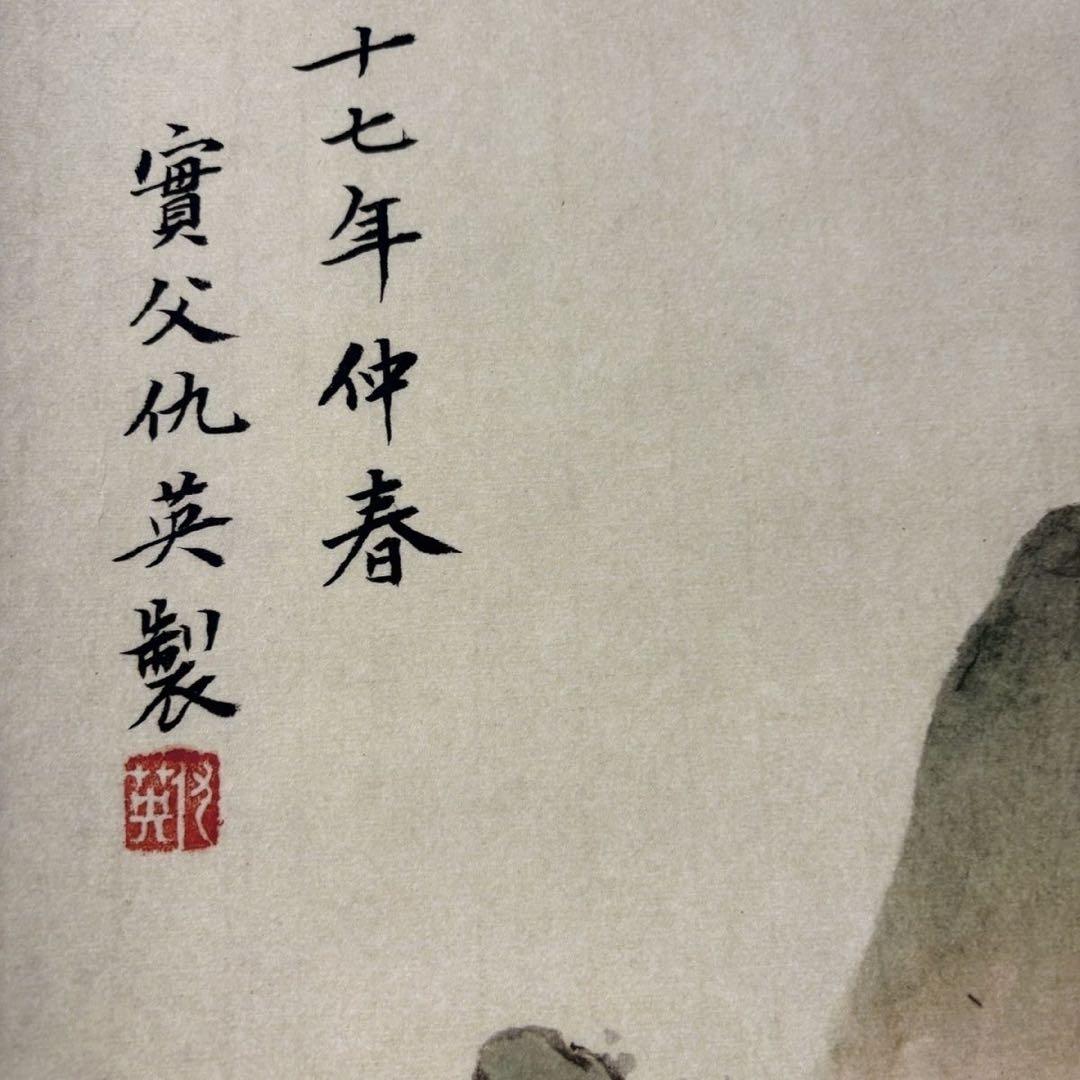 十七年仲春
實父仇英製
仇英